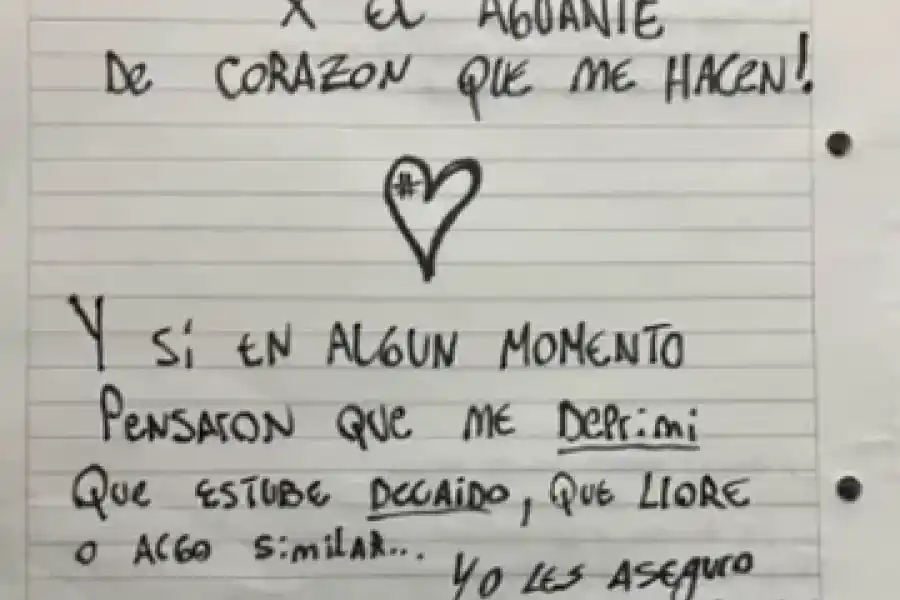 X EL AGUANTE
De CORAZON QUE ME HACEN!
#
Y Si EN ALGUN MOMENTO
PENSARON QUE ME DePrimi
Que ESTUBE DECAIDO, QUE LLORE
O ALGO SimilAR...
YO LES ASEGURO